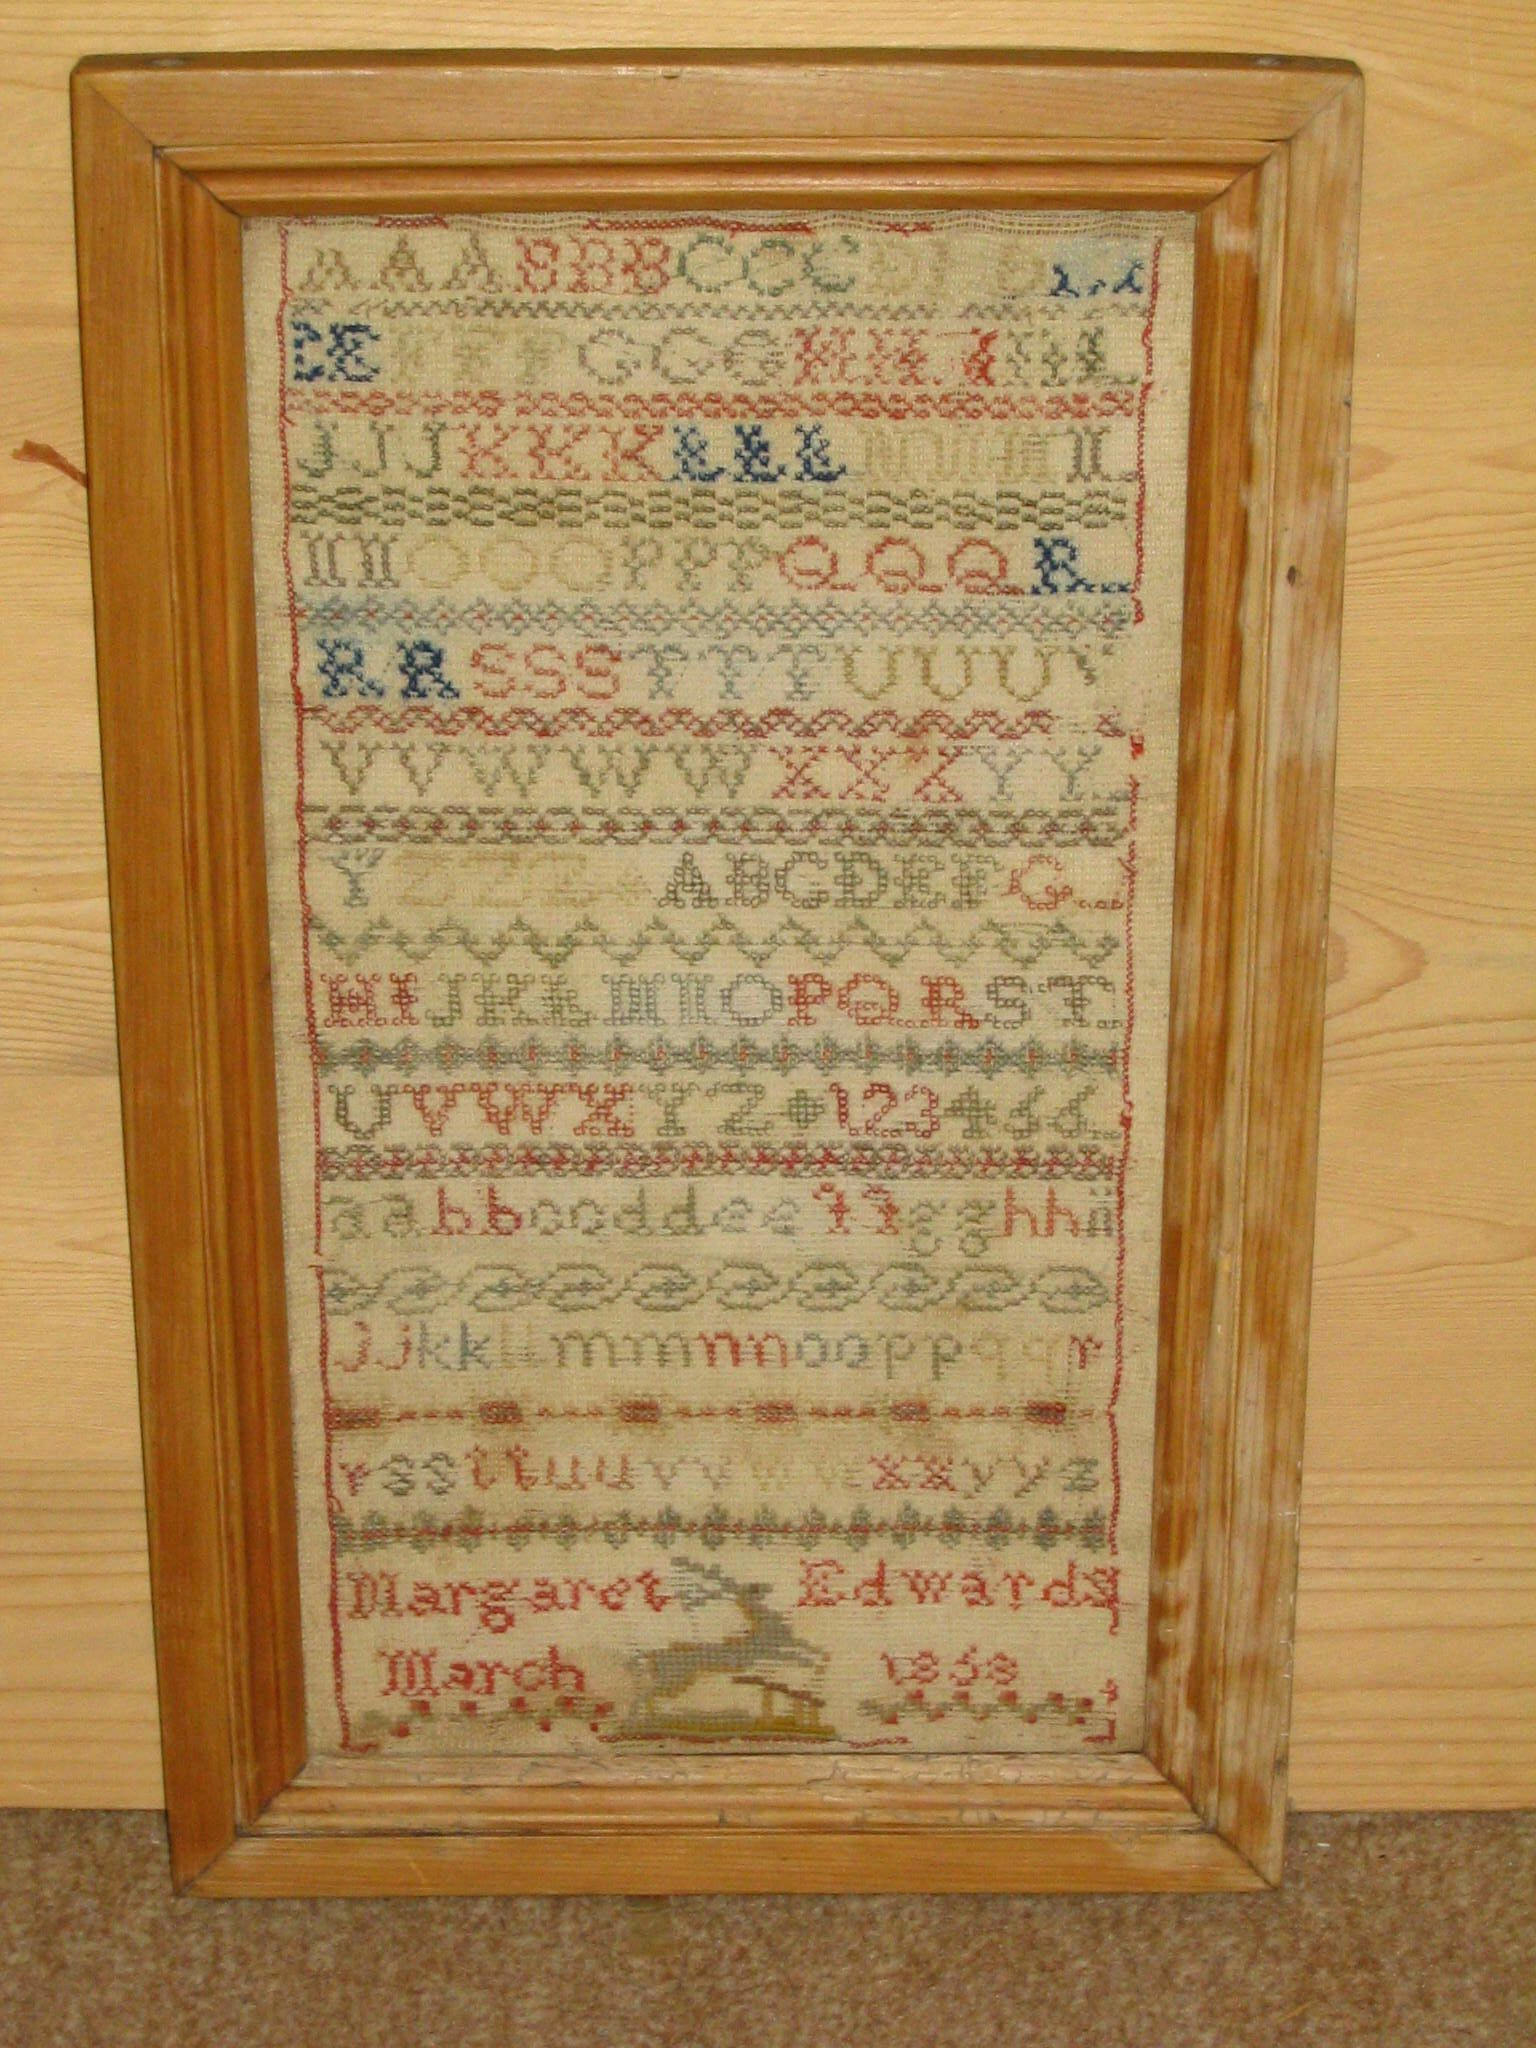 A A A B B B C C C D D E
E E F F F G G G H H H I I I
J J J K K K L L L M M M N
N N O O O P P P Q Q Q R
R R S S S T T T U U U V
V V W W W X X X Y Y
Y Z Z Z A B C D E F G
H I J K L M N O P Q R S T
U V W X Y Z 1 2 3 4
a a b b c c d d e e f f g g h h i i
j j k k l l m m m n n o o p p q q r
r s s t t u u v v w w x x y y z
Margaret Edwards
March 1868